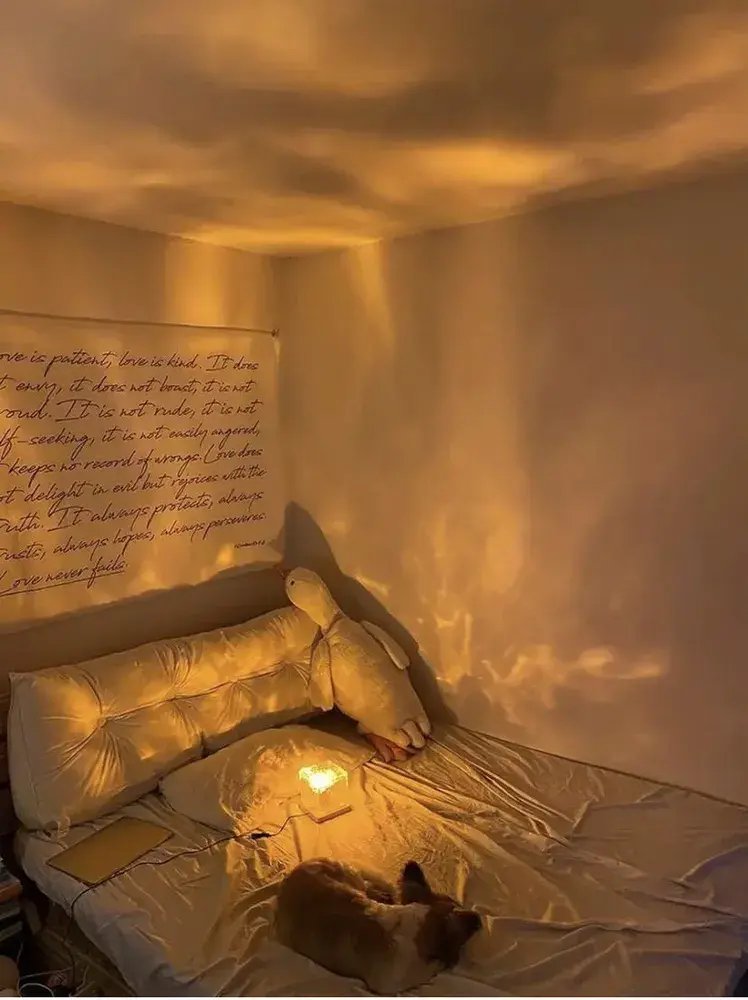 ove is patient, love is kind. It does
t envy, it does not boast, it is not
roud. It is not rude, it is not
lf-seeking, it is not easily angered,
keeps no record of wrongs. Love does
ot delight in evil but rejoices with the
ruth. It always protects, always
rusts, always hopes, always perseveres
Love never fails.